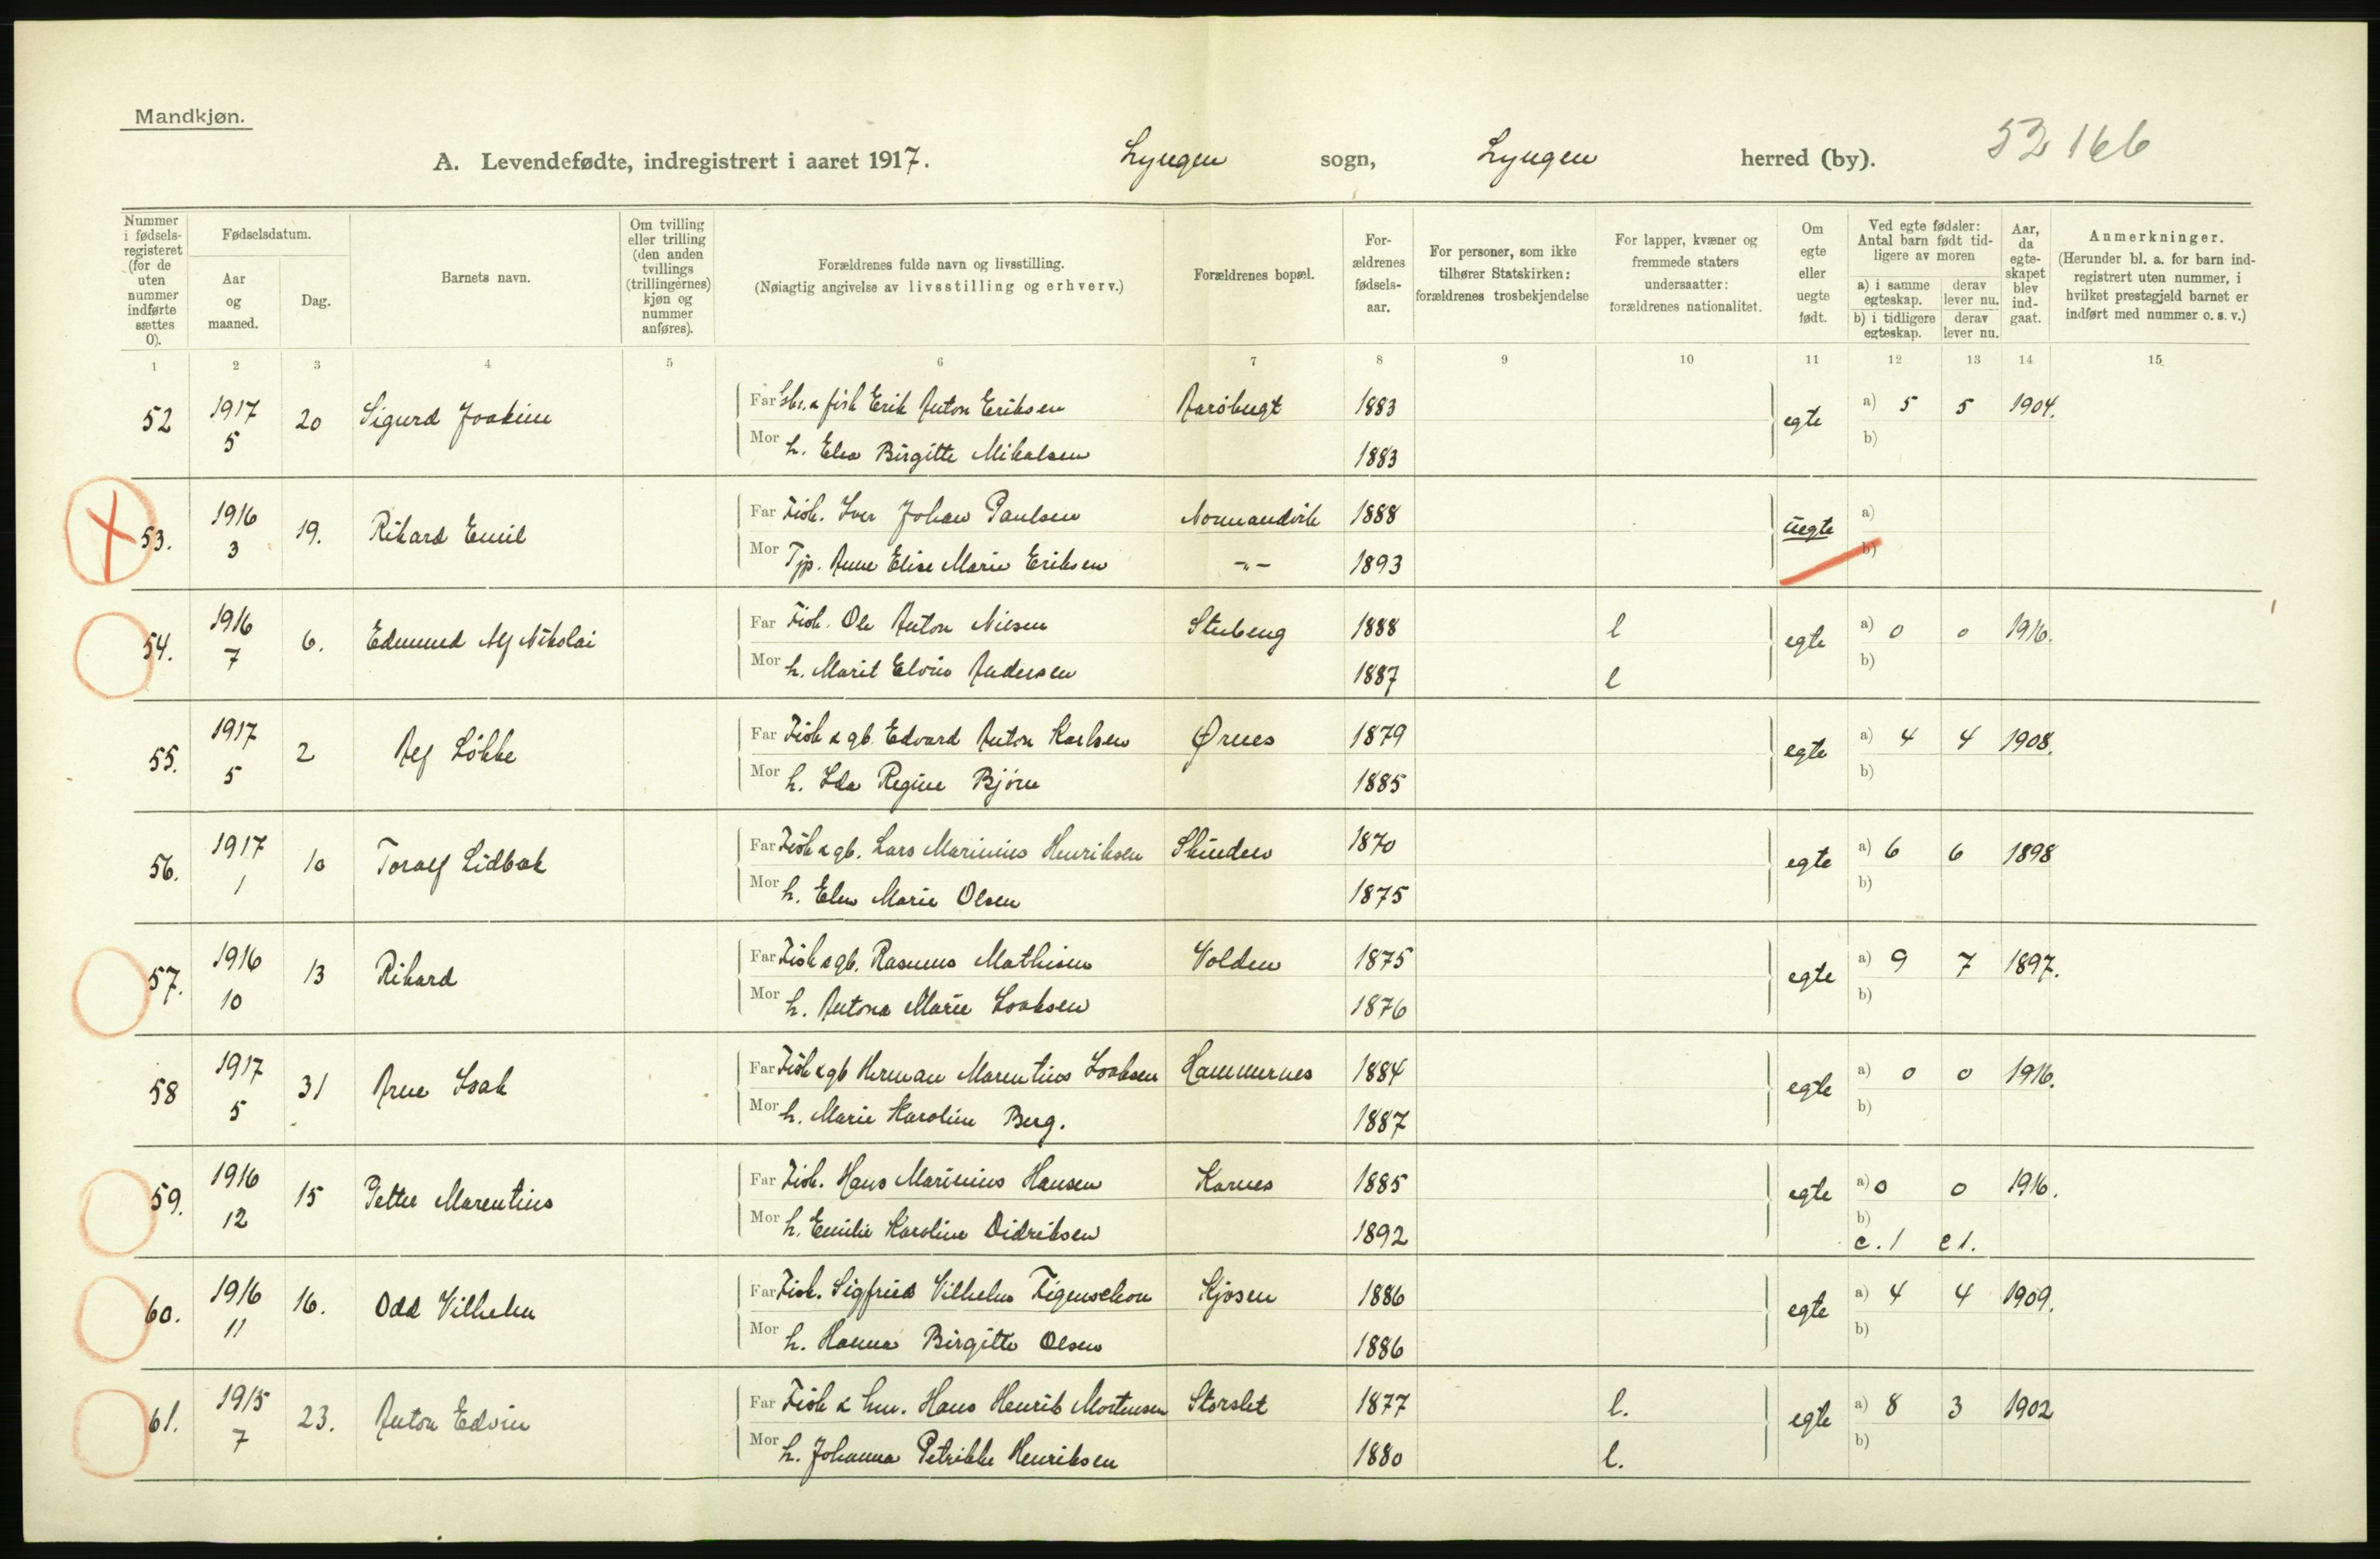 Mandkjøn.
A. Levendefødte, indregistrert i aaret 1917. Lyngen sogn, Lyngen herred (by). 52 166
Nummer i fødselsregisteret (for de uten nummer indførte sættes 0).
Fødselsdatum.
Aar og maaned.
Dag.
Barnets navn.
Om tvilling eller trilling (den anden tvillings (trillingernes) kjøn og nummer anføres).
Forældrenes fulde navn og livsstilling.
(Nøiagtig angivelse av livsstilling og erhverv.)
Forældrenes bopæl.
Forældrenes fødselsaar.
For personer, som ikke tilhører Statskirken: forældrenes trosbekjendelse
For lapper, kvæner og fremmede staters undersaatter: forældrenes nationalitet.
Om egte eller uegte født.
Ved egte fødsler: Antal barn født tidligere av moren
a) i samme egteskap. derav lever nu.
b) i tidligere egteskap. derav lever nu.
Aar, da egteskapet blev indgaat.
Anmerkninger.
(Herunder bl. a. for barn indregistrert uten nummer, i hvilket prestegjeld barnet er indført med nummer o. s. v.)
1 2 3 4 5 6 7 8 9 10 11 12 13 14 15
52 1917 5 20 Sigurd Joakim Far & fisk Erik Anton Eriksen 1883 egte a) 5 5 1904.
Mor h. Birgitte Mikalsen 1883 b)
53. 1916 3 19. Rikard Emil Far Fisk. Iver Johan Paulsen Normandvik 1888 uegte a)
Mor Tjp. Anne Elise Marie Eriksen -"- 1893 b)
54. 1916 7 6. Edmund Alf Nikolai Far Fisk. Ole Anton Nilsen Stubeng 1888 l egte a) 0 0 1916.
Mor h. Marit Andersen 1887 l b)
55. 1917 5 2 Alf Løkke Far Fisk & gb. Edvard Anton Karlsen Ørnes 1879 egte a) 4 4 1908.
Mor h. Ida Regine Bjørn 1885 b)
56. 1917 1 10 Toralf Lidbak Far Fisk & gb. Lars Marinius Henriksen 1870 egte a) 6 6 1898
Mor h. Elen Marie Olsen 1875 b)
57. 1916 10 13 Rikard Far Fisk & gb. Rasmus Mathisen Volden 1875 egte a) 9 7 1897.
Mor h. Antona Marie Isaksen 1876 b)
58 1917 5 31 Arne Isak Far Fisk & gb Herman Marentius Isaksen Hammernes 1884 egte a) 0 0 1916.
Mor h. Marie Karoline Berg. 1887 b)
59. 1916 12 15 Petter Marentius Far Fisk. Hans Marinius Hansen Karnes 1885 egte a) 0 0 1916.
Mor h. Emilie Karoline Didriksen 1892 b)
c. 1 c 1.
60. 1916 11 16. Odd Vilhelm Far Fisk. Sigfried Vilhelm Figenschou Kjosen 1886 egte a) 4 4 1909.
Mor h. Hanna Birgitte Olsen 1886 b)
61. 1915 7 23. Anton Edvin Far Fisk & hm. Hans Henrik Mortensen Storslet 1877 l. egte a) 8 3 1902
Mor h. Johanna Petrikke Henriksen 1880 l. b)